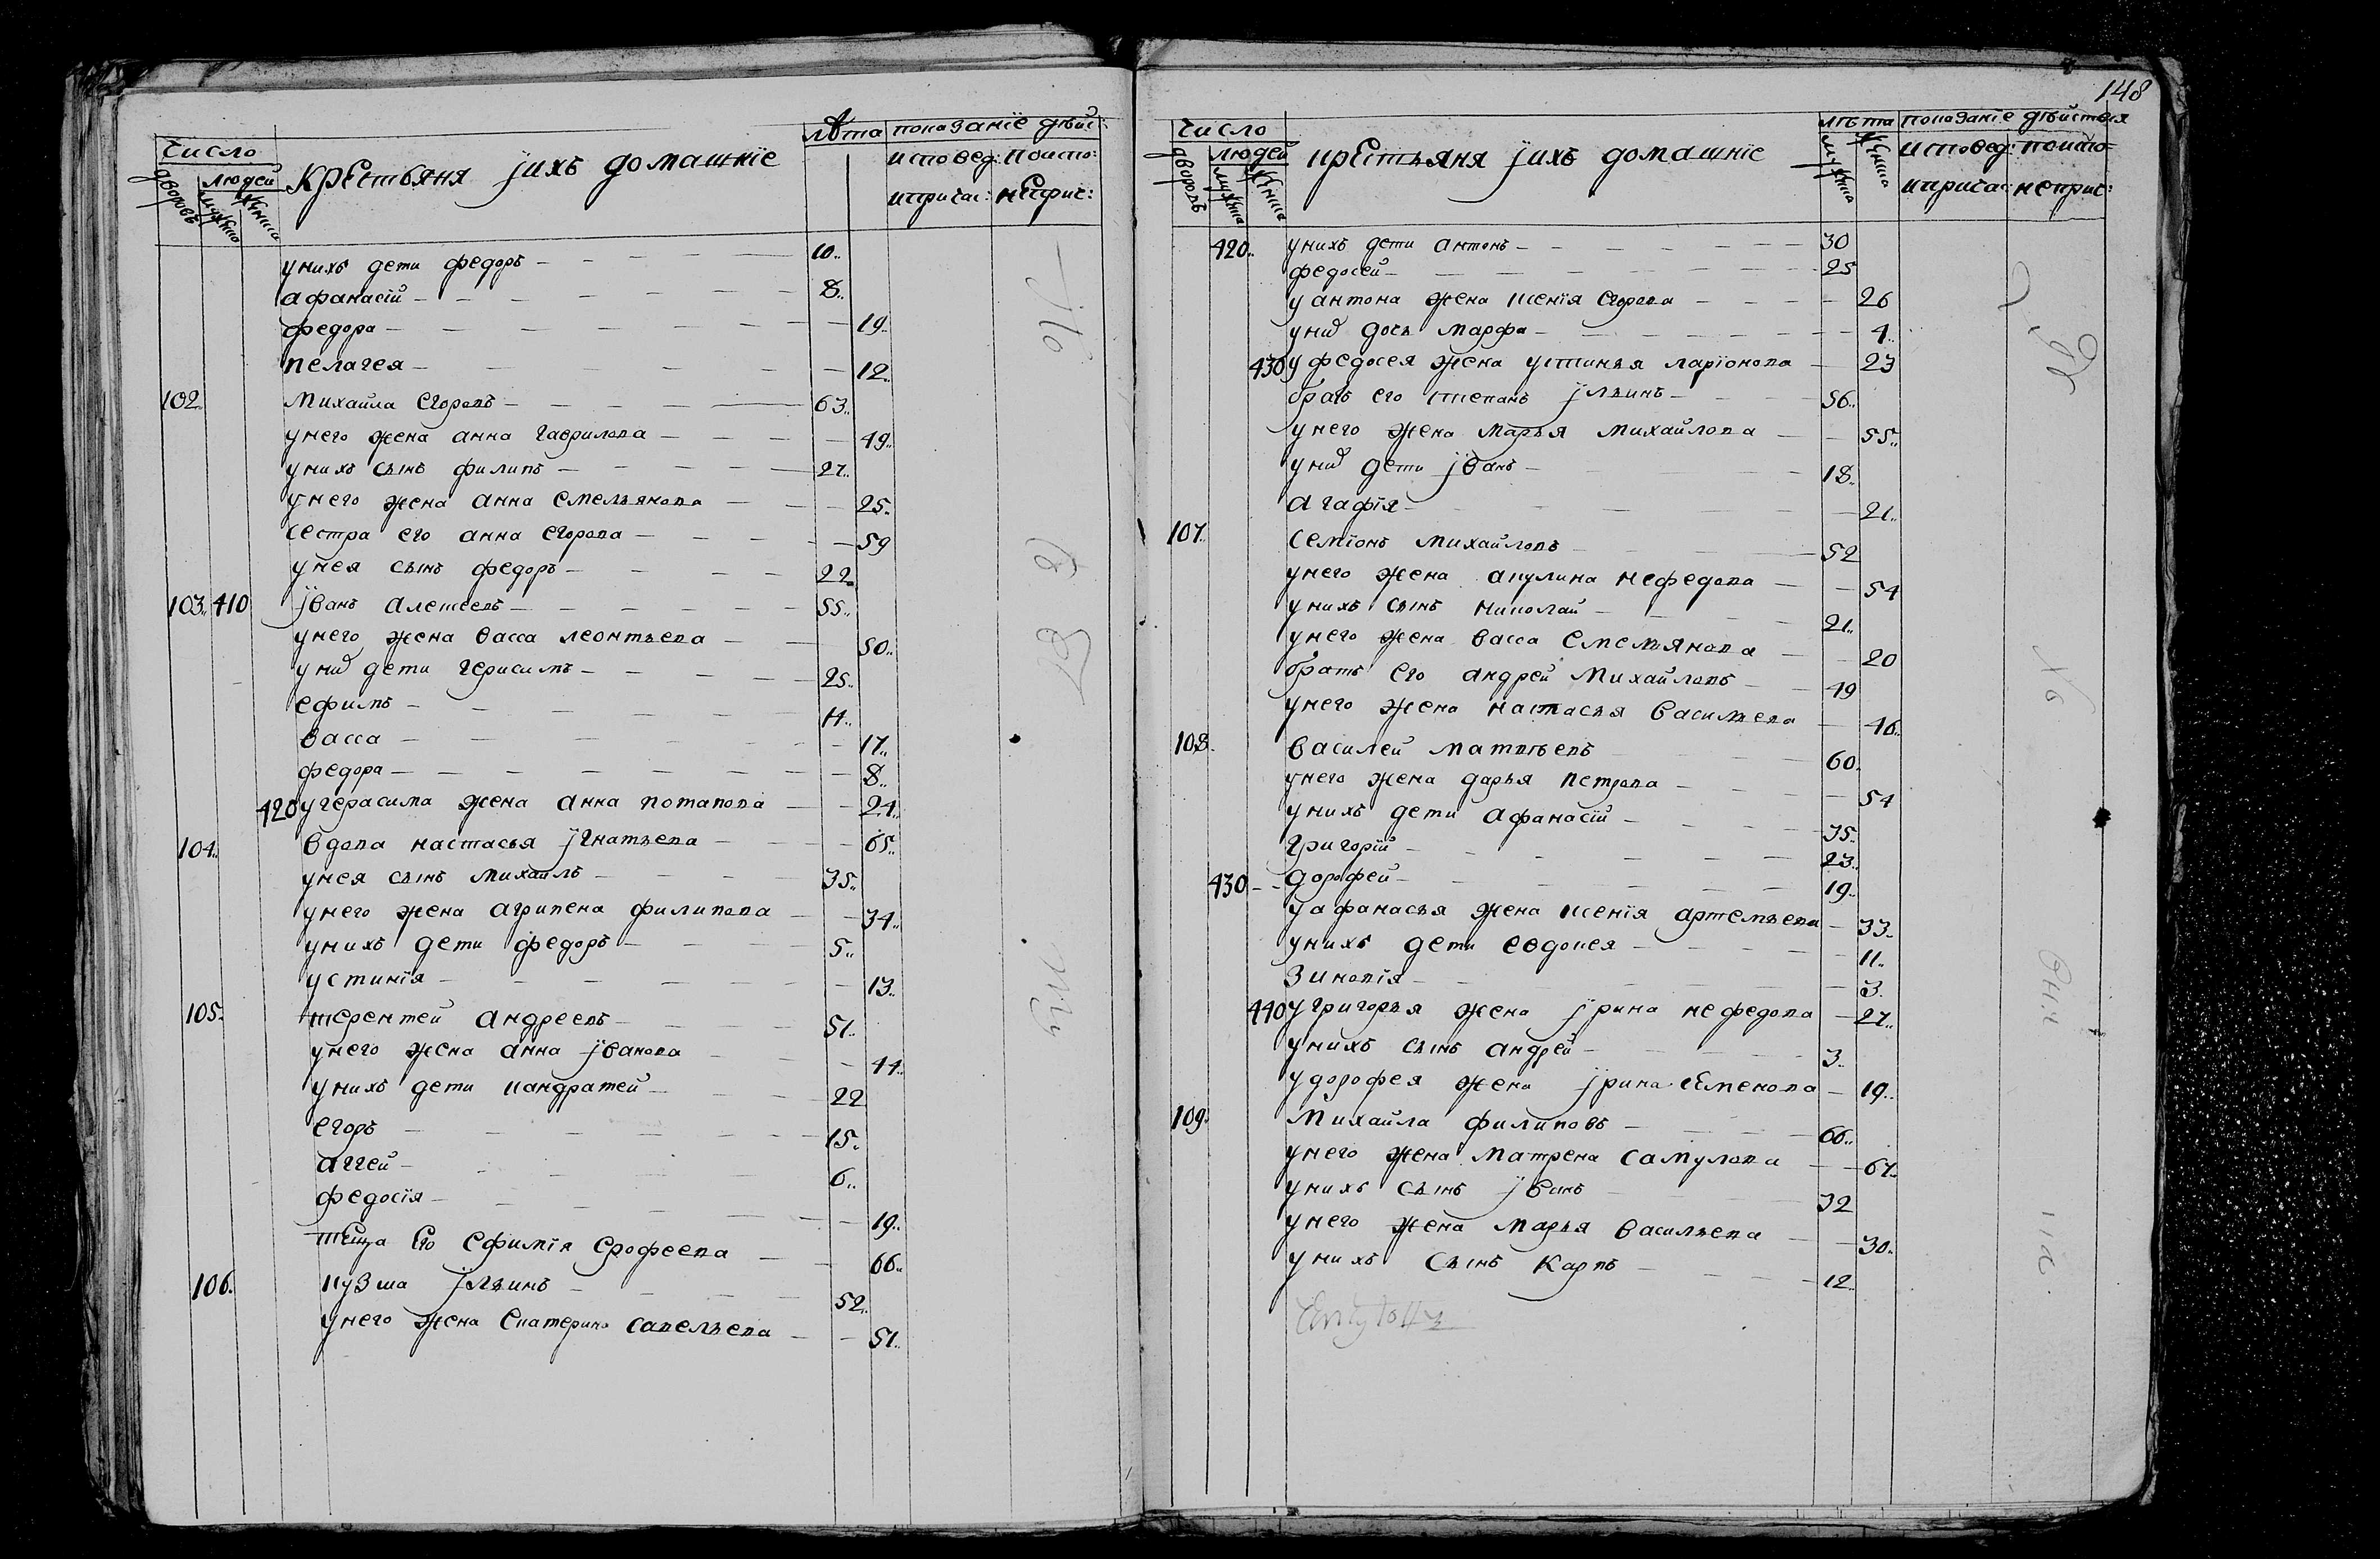 Число
дворовъ
людей
мужеска
женска
Крестьяня ихъ домашніе
лѣта
показаніе дѣйс:
исповед: поиспо:
ипричас: неприс:
унихъ дети федоръ 10
афанасій 8
федора 19
пелагея 12
102 михаила егоровъ 63
унего жена анна гаврилова 49
унихъ сынъ филипъ 27
унего жена анна емельянова 25
сестра его анна егорова 59
унея сынъ федоръ 22
103 410 Іванъ алексеевъ 55
унего жена васса леонтьева 50
униъ дети герасимъ 25
ефимъ 11
васса 17
федора 8
420 угерасима жена анна потапова 24
104 вдова настасья Ігнатьева 65
унея сынъ михаилъ 35
унего жена агрипена филипова 34
унихъ дети федоръ 5
устинія 13
105 терентей андреевъ 51
унего жена анна Іванова 44
унихъ дети кандратей 22
егоръ 15
аггей 6
федосія 19
теща его ефимія ерофеева 66
106 кузма Ільинъ 52
унего жена екатерина савельева 51
148
Число
дворовъ
людей
мужеска
женска
крестьяня ихъ домашніе
лѣта
мужска
женска
показаніе дѣйствия
исповед: поиспо
ипричас: неприс:
420 унихъ дети антонъ 30
федосей 25
уантона жена ксенія егорова 26
униъ дочь марфа 4
430 уфедосея жена устинья ларіонова 23
братъ его степанъ Ільинъ 56
унего жена марья михайлова 55
униъ дети Іванъ 18
агафія 21
107 семіонъ михайловъ 52
унего жена акулина нефедова 54
унихъ сынъ николай 21
унего жена васса емельянова 20
братъ его андрей михайловъ 49
унего жена настасья васильева 46
108 василей матвѣевъ 60
унего жена дарья петрова 54
унихъ дети афанасій 35
григорій 23
430 дорофей 19
уафанасья жена ксенія артемьева 33
унихъ дети евдокея 11
зиновія 3
440 угригорья жена Ірина нефедова 27
унихъ сынъ андрей 3
удорофея жена Ірина семенова 19
109 михаила филиповъ 66
унего жена матрена самулова 67
унихъ сынъ Іванъ 32
унего жена марья васильева 30
унихъ сынъ карпъ 12